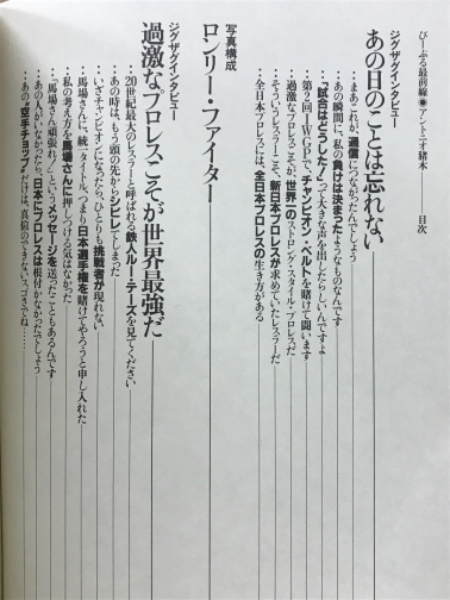 ぴーぷる最前線◉アントニオ猪木――――目次
ジグザグインタビュー
あの日のことは忘れない
・まあこれが、過信につながったんでしょう
・あの瞬間に、私の負けは決まったようなものなんです
・「試合はどうした!」って大きな声を出したらしいんですよ
・第2回IWGPで、チャンピオン・ベルトを賭けて闘います
・過激なプロレスこそが、世界一のストロング・スタイル・プロレスだ
・そういうレスラーこそ、新日本プロレスが求めていたレスラーだ
・全日本プロレスには、全日本プロレスの生き方がある
写真構成
ロンリー・ファイター
ジグザグインタビュー
過激なプロレスこそが世界最強だ
・20世紀最大のレスラーと呼ばれる鉄人ルー・テーズを見てください
・あの時は、もう頭の先からシビレてしまった
・いざチャンピオンになったら、ひとりも挑戦者が現れない
・馬場さんに、統一タイトル、つまり日本選手権を賭けてやろうと申し入れた
・私の考え方を馬場さんに押しつける気はなかった
・『馬場さん頑張れ!』というメッセージを送ったこともあるんです
・あの人がいなかったら、日本にプロレスは根付かなかったでしょう
・あの“空手チョップ”だけは、真似のできないスゴさでね……